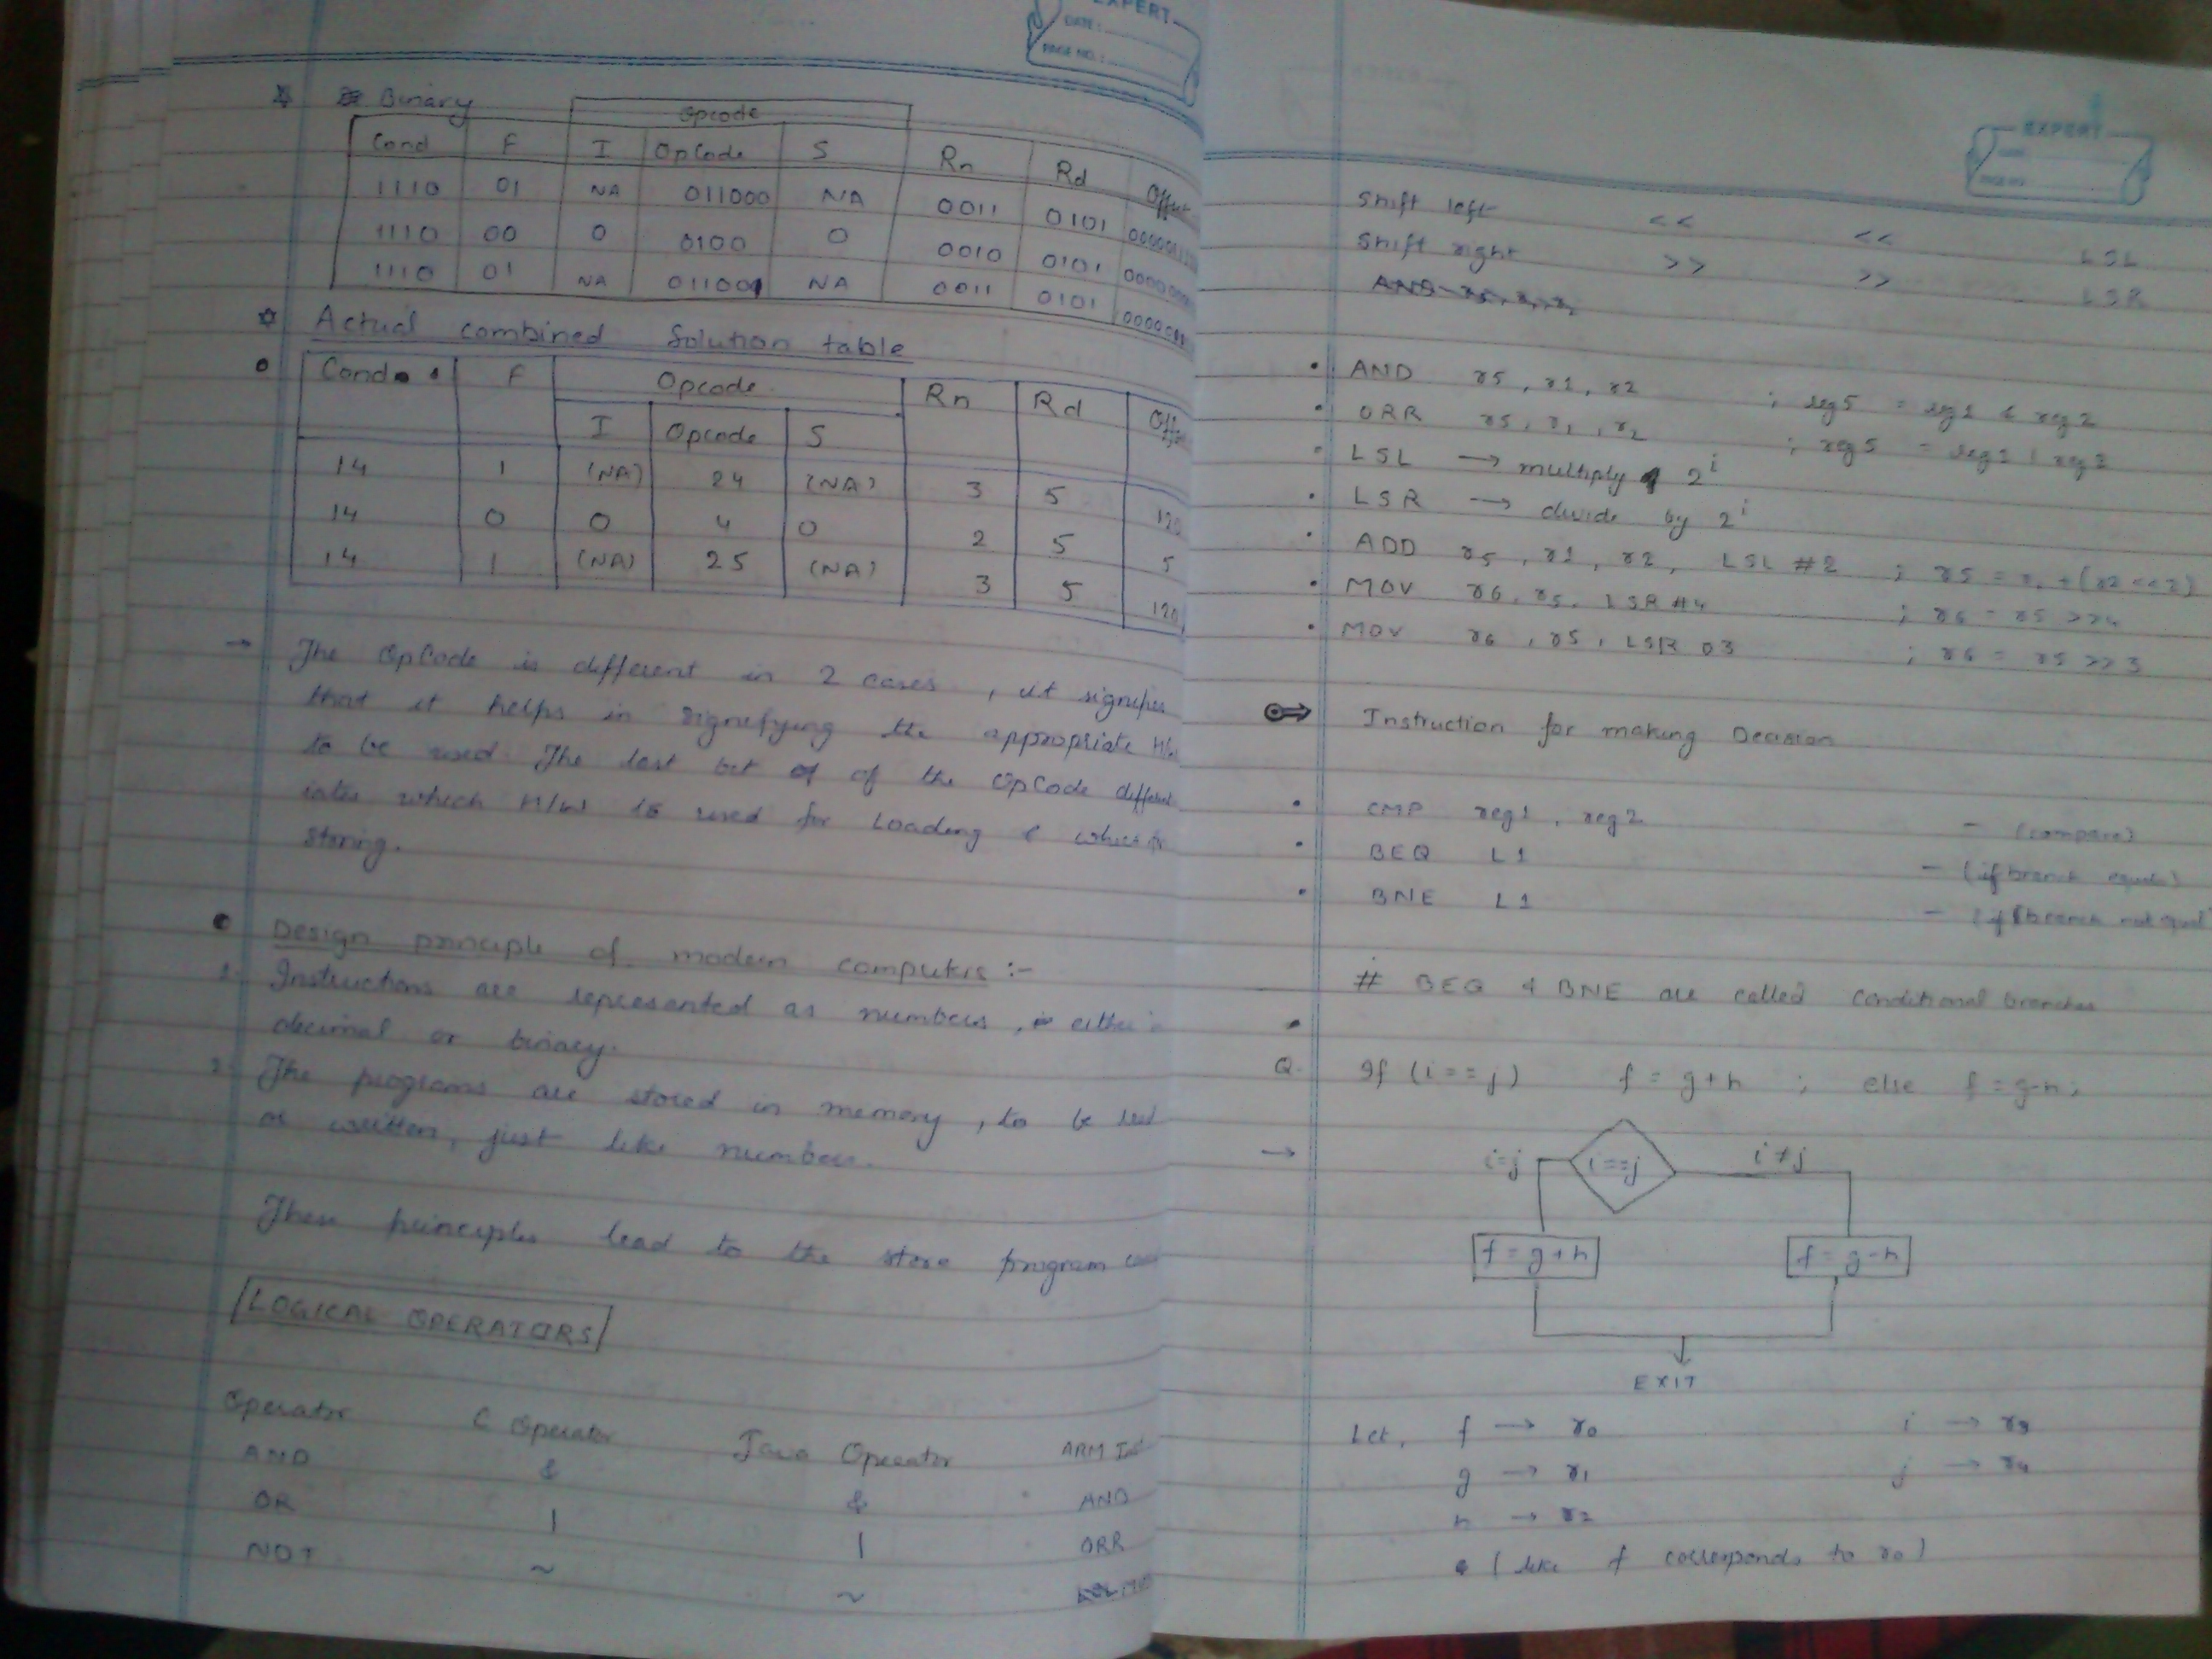 EXPERT
DATE:
PAGE NO.:
Binary
Opcode
Cond F I OpCode S Rn Rd Offset
1110 01 NA 011000 NA 0011 0101
1110 00 0 0100 0 0010 0101
1110 01 NA 011001 NA 0011 0101
Actual combined Solution table
Cond F Opcode Rn Rd
I Opcode S
14 1 (NA) 24 (NA) 3 5 120
14 0 0 4 0 2 5 5
14 1 (NA) 25 (NA) 3 5 120
→ The OpCode is different in 2 cases, it signifies
that it helps in signefying the appropriate H/w
to be used. The last bit of of the OpCode different
iates which H/W is used for Loading & which for
storing.
Design principle of modern computers :-
1. Instructions are represented as numbers, either
decimal or binary.
2. The programs are stored in memory, to be read
or written, just like numbers.
These principles lead to the store program
LOGICAL OPERATORS
Operator C Operator Java Operator ARM
AND & & AND
OR | | ORR
NOT ~ ~
EXPERT
Shift left << << LSL
Shift right >> >> LSR
• AND r5, r1, r2 ; reg5 = reg1 & reg2
• ORR r5, r1, r2 ; reg5 = reg1 | reg2
• LSL → multiply 2^i
• LSR → divide by 2^i
• ADD r5, r1, r2, LSL #2 ; r5 = r1 + (r2<<2)
• MOV r6, r5, LSR #4 ; r6 = r5 >>4
• MOV r6, r5, LSR 03 ; r6 = r5 >> 3
Instruction for making Decision
• CMP reg1, reg2 - (compare)
• BEQ L1 - (if branch equal)
• BNE L1 - (if branch not equal
# BEQ & BNE are called conditional branches
Q. If (i==j) f = g+h ; else f = g-h;
→ i=j i==j i≠j
f = g+h f = g-h
EXIT
Let, f → r0 i → r3
g → r1 j → r4
h → r2
(like f corresponds to r0)